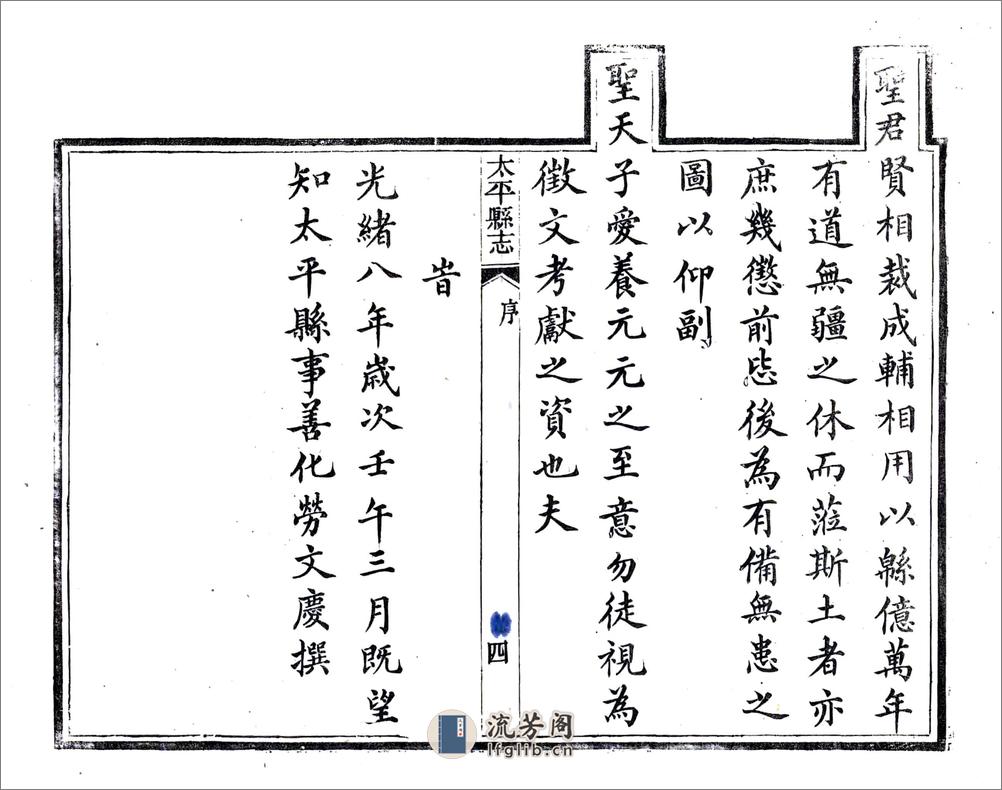 聖君賢相裁成輔相用以緜億萬年
有道無疆之休而蒞斯土者亦
庶幾懲前毖後為有備無患之
圖以仰副
聖天子愛養元元之至意勿徒視為
徵文考獻之資也夫
太平縣志
序
四
旹
光緒八年歲次壬午三月既望
知太平縣事善化勞文慶撰
流芳阁
lfglib.cn